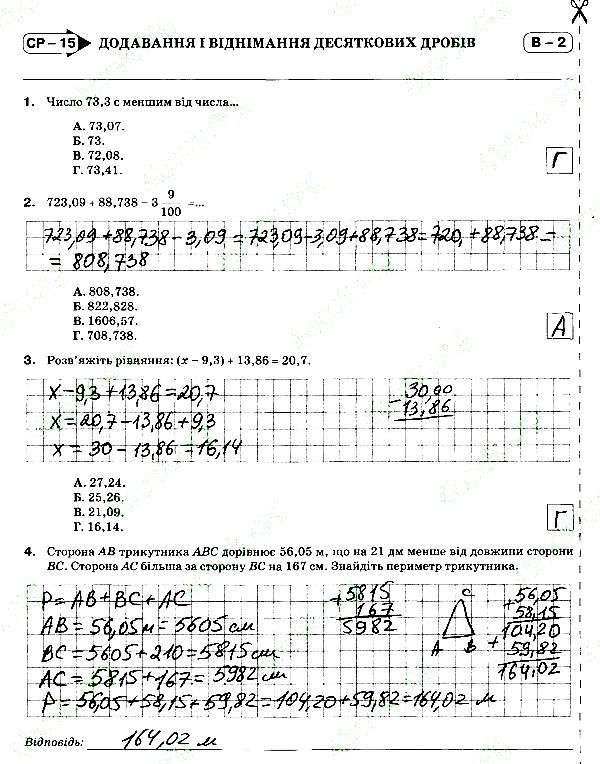 СР – 15 ДОДАВАННЯ І ВІДНІМАННЯ ДЕСЯТКОВИХ ДРОБІВ В – 2
1. Число 73,3 є меншим від числа...
А. 73,07.
Б. 73.
В. 72,08.
Г. 73,41.
Г
2. 723,09 + 88,738 – 3 9/100 =...
723,09+88,738–3,09=723,09–3,09+88,738=720,+88,738=
= 808,738
А. 808,738.
Б. 822,828.
В. 1606,57.
Г. 708,738.
А
3. Розв'яжіть рівняння: (x – 9,3) + 13,86 = 20,7.
x–9,3+13,86=20,7
x=20,7–13,86+9,3
x= 30–13,86=16,14
– 30,00
13,86
А. 27,24.
Б. 25,26.
В. 21,09.
Г. 16,14.
Г
4. Сторона AB трикутника ABC дорівнює 56,05 м, що на 21 дм менше від довжини сторони
BC. Сторона AC більша за сторону BC на 167 см. Знайдіть периметр трикутника.
P=AB+BC+AC
AB=56,05м=5605 см
BC=5605+210=5815см
AC=5815+167=5982 см
P=56,05+58,15+59,82=104,20+59,82=164,02 м
+ 5815
167
5982
C
A B
+ 56,05
58,15
+ 104,20
59,82
164,02
Відповідь: 164,02 м